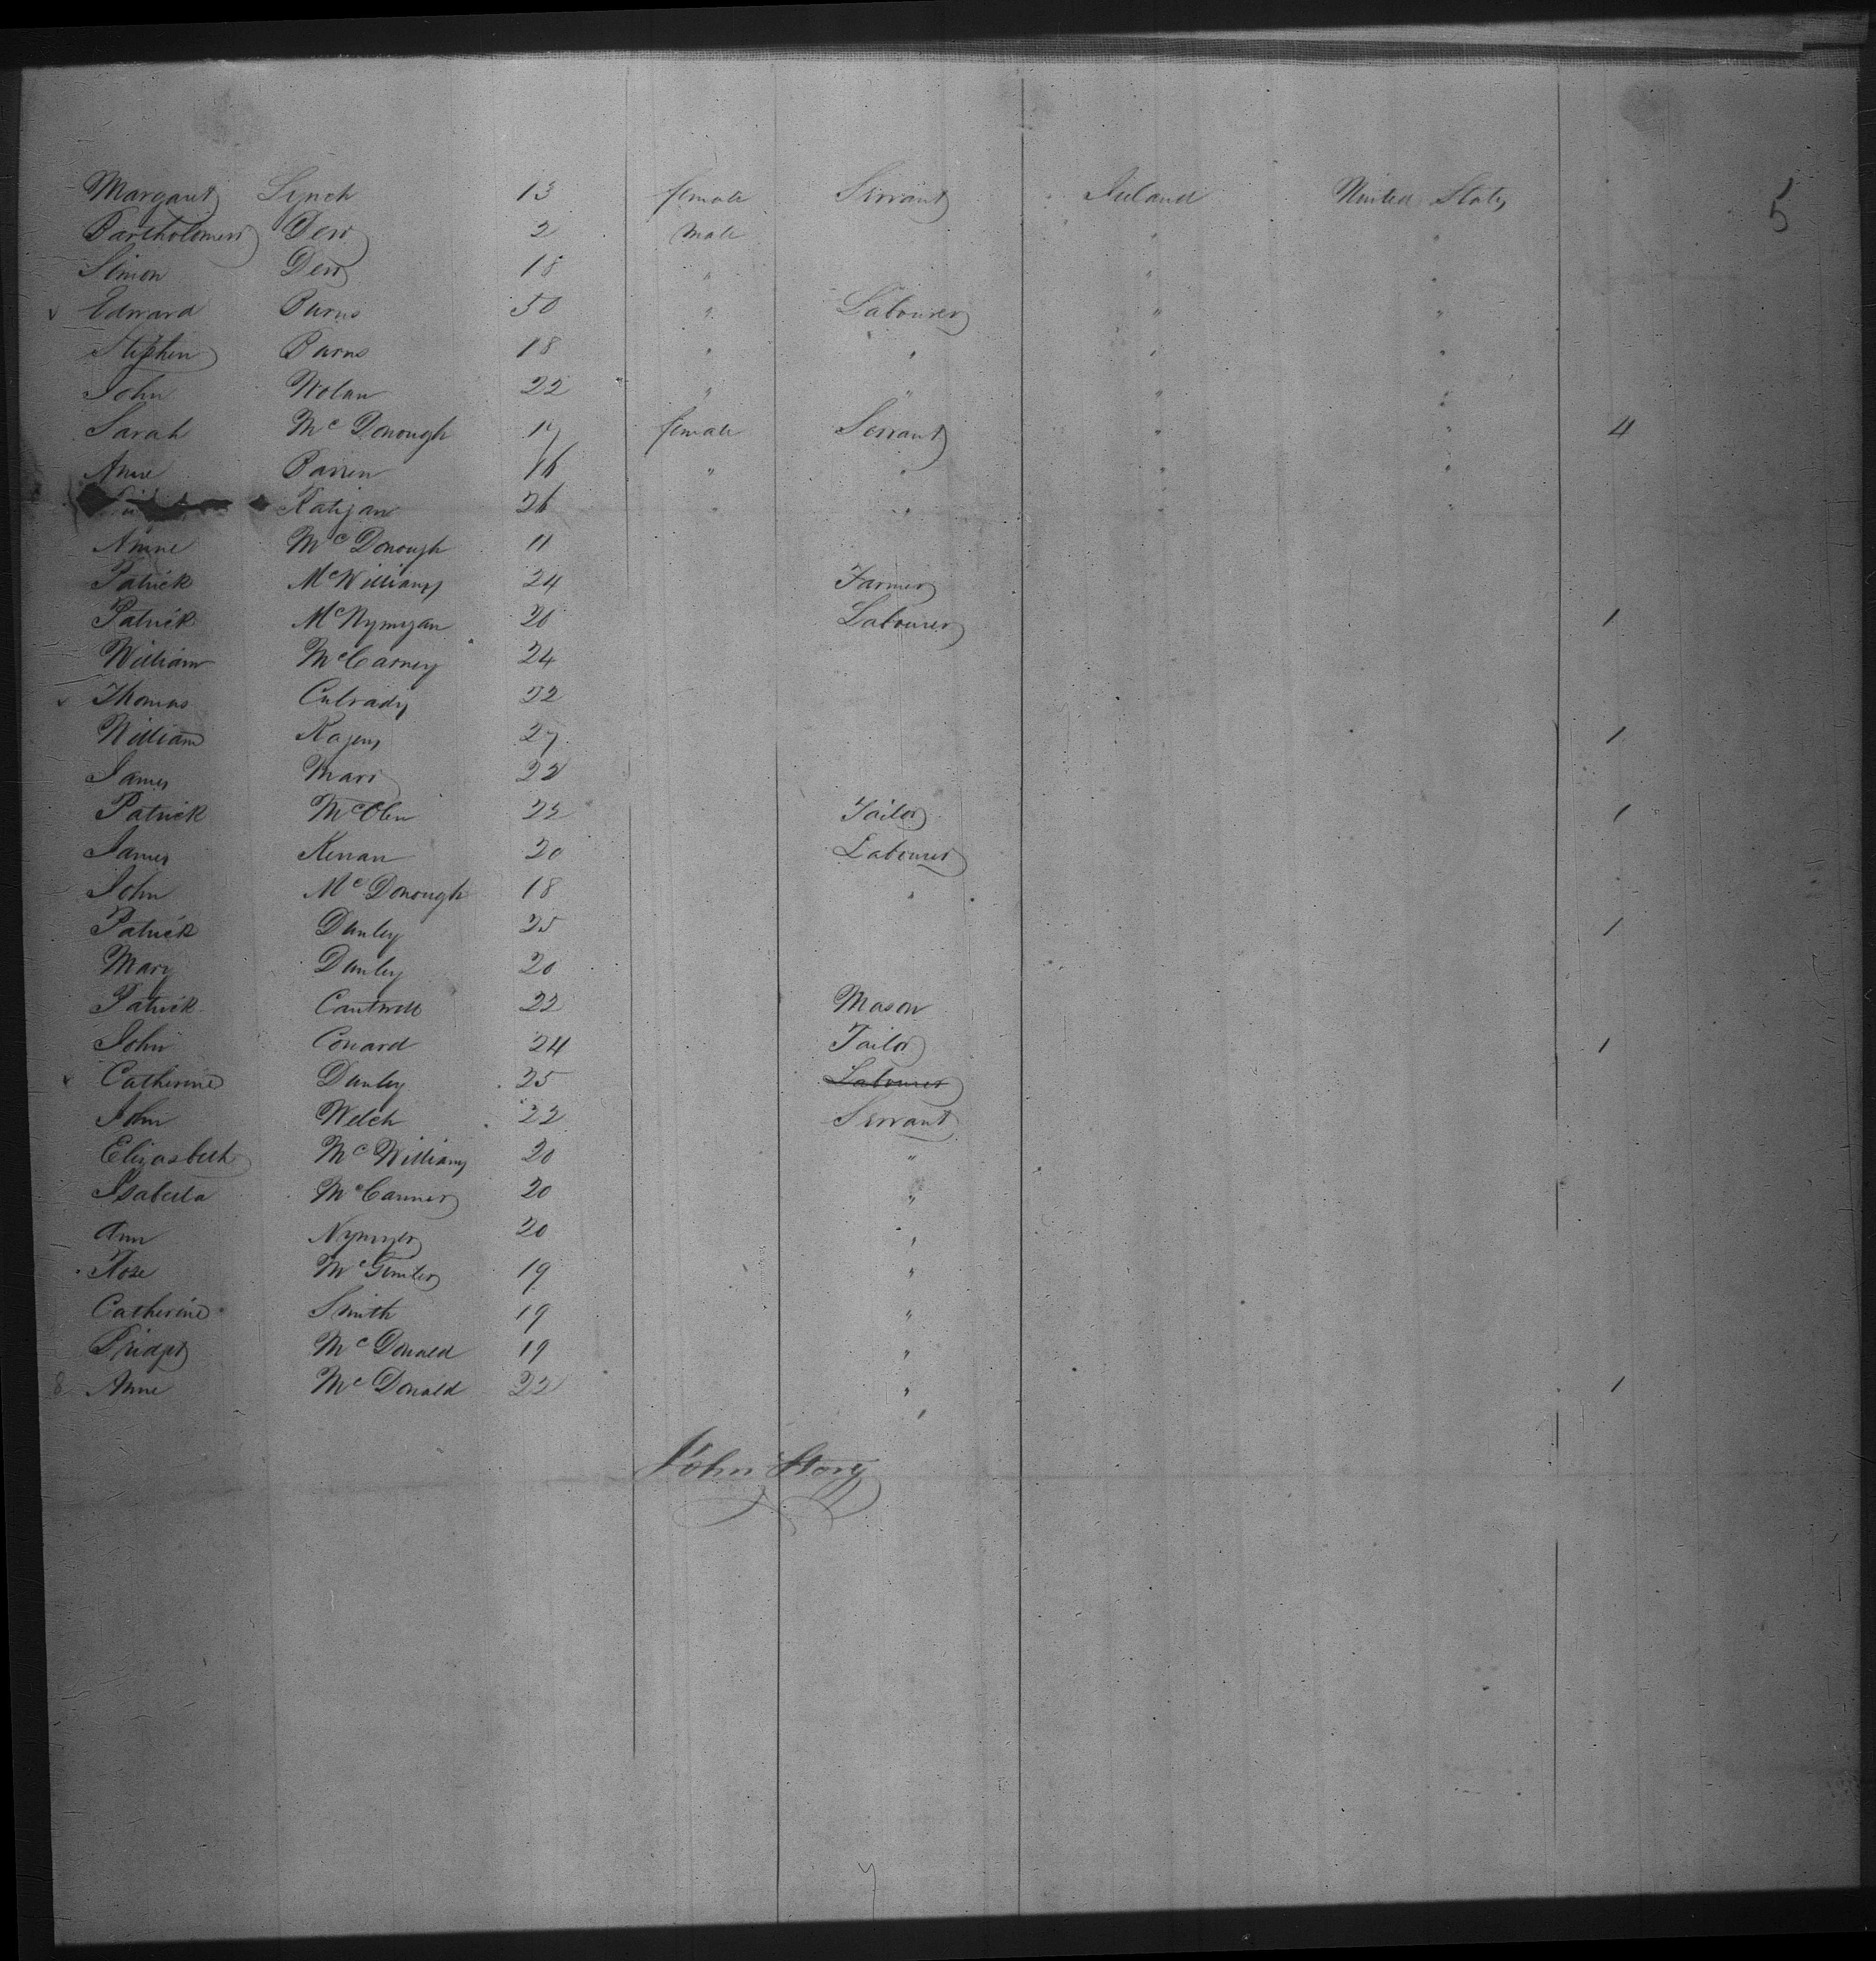 Margaret Lynch 13 female Servant Ireland United States 5
Bartholomew Dew 2 Male " "
Simon Dew 18 " " "
Edward Burns 50 " Labourer " "
Stephen Burns 18 " " " "
John Nolan 22 " " " "
Sarah McDonough 17 female Servant " " 4
Anne Barren 16 " " " "
Katigan 26 " " " "
Anne McDonough 11
Patrick McWilliams 24 Farmer
Patrick McNymyan 20 Labourer 1
William McCarney 24
Thomas Culrady 22
William Ragens 27 1
James Marr 22
Patrick McOlen 22 Tailor 1
James Kenan 20 Labourer
John McDonough 18 "
Patrick Danley 25 1
Mary Danley 20
Patrick Cantwell 22 Mason
John Conard 24 Tailor 1
Catherine Danley 25 Labourer
John Welch 22 Servant
Elizasbeth McWilliams 20 "
Isabella McCanner 20 "
Ann Nymyer 20 "
Rose 19 "
Catherine Smith 19 "
Bridget McDonald 19 "
8 Anne McDonald 22 " 1
John Story